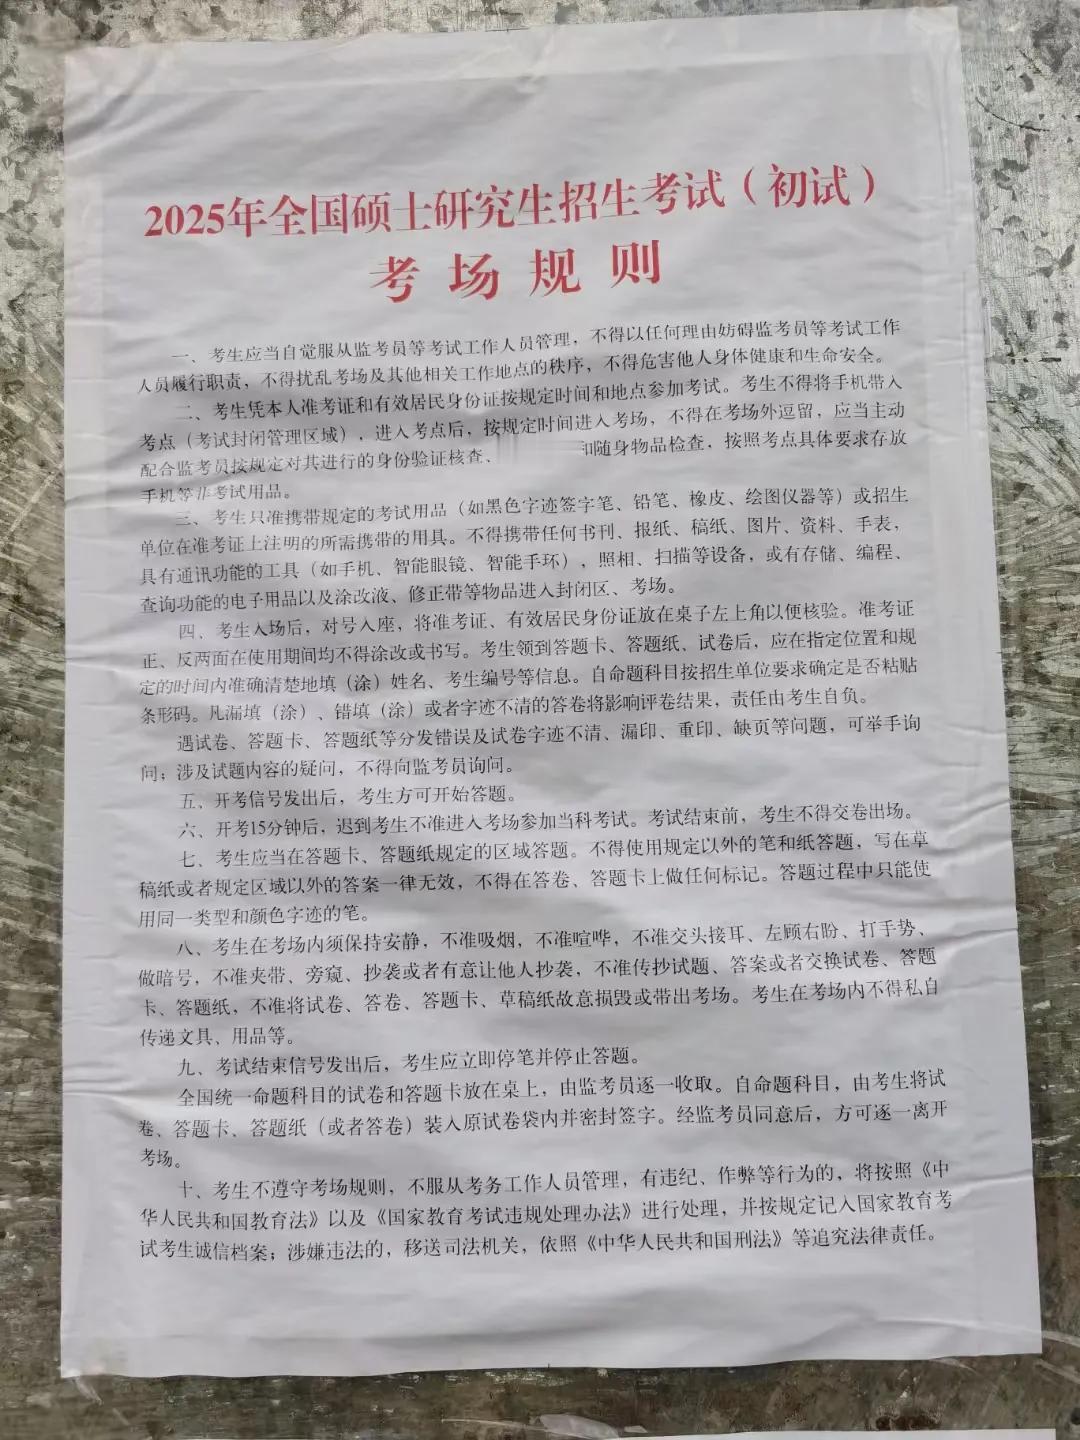 2025年全国硕士研究生招生考试（初试）
考场规则
一、考生应当自觉服从监考员等考试工作人员管理，不得以任何理由妨碍监考员等考试工作
人员履行职责，不得扰乱考场及其他相关工作地点的秩序，不得危害他人身体健康和生命安全。
二、考生凭本人准考证和有效居民身份证按规定时间和地点参加考试。考生不得将手机带入
考点（考试封闭管理区域），进入考点后，按规定时间进入考场，不得在考场外逗留，应当主动
配合监考员按规定对其进行的身份验证核查、和随身物品检查，按照考点具体要求存放
手机等非考试用品。
三、考生只准携带规定的考试用品（如黑色字迹签字笔、铅笔、橡皮、绘图仪器等）或招生
单位在准考证上注明的所需携带的用具。不得携带任何书刊、报纸、稿纸、图片、资料、手表，
具有通讯功能的工具（如手机、智能眼镜、智能手环），照相、扫描等设备，或有存储、编程、
查询功能的电子用品以及涂改液、修正带等物品进入封闭区、考场。
四、考生入场后，对号入座，将准考证、有效居民身份证放在桌子左上角以便核验。准考证
正、反两面在使用期间均不得涂改或书写。考生领到答题卡、答题纸、试卷后，应在指定位置和规
定的时间内准确清楚地填（涂）姓名、考生编号等信息。自命题科目按招生单位要求确定是否粘贴
条形码。凡漏填（涂）、错填（涂）或者字迹不清的答卷将影响评卷结果，责任由考生自负。
遇试卷、答题卡、答题纸等分发错误及试卷字迹不清、漏印、重印、缺页等问题，可举手询
问；涉及试题内容的疑问，不得向监考员询问。
五、开考信号发出后，考生方可开始答题。
六、开考15分钟后，迟到考生不准进入考场参加当科考试。考试结束前，考生不得交卷出场。
七、考生应当在答题卡、答题纸规定的区域答题。不得使用规定以外的笔和纸答题，写在草
稿纸或者规定区域以外的答案一律无效，不得在答卷、答题卡上做任何标记。答题过程中只能使
用同一类型和颜色字迹的笔。
八、考生在考场内须保持安静，不准吸烟，不准喧哗，不准交头接耳、左顾右盼、打手势、
做暗号，不准夹带、旁窥、抄袭或者有意让他人抄袭，不准传抄试题、答案或者交换试卷、答题
卡、答题纸，不准将试卷、答卷、答题卡、草稿纸故意损毁或带出考场。考生在考场内不得私自
传递文具、用品等。
九、考试结束信号发出后，考生应立即停笔并停止答题。
全国统一命题科目的试卷和答题卡放在桌上，由监考员逐一收取。自命题科目，由考生将试
卷、答题卡、答题纸（或者答卷）装入原试卷袋内并密封签字。经监考员同意后，方可逐一离开
考场。
十、考生不遵守考场规则，不服从考务工作人员管理，有违纪、作弊等行为的，将按照《中
华人民共和国教育法》以及《国家教育考试违规处理办法》进行处理，并按规定记入国家教育考
试考生诚信档案；涉嫌违法的，移送司法机关，依照《中华人民共和国刑法》等追究法律责任。